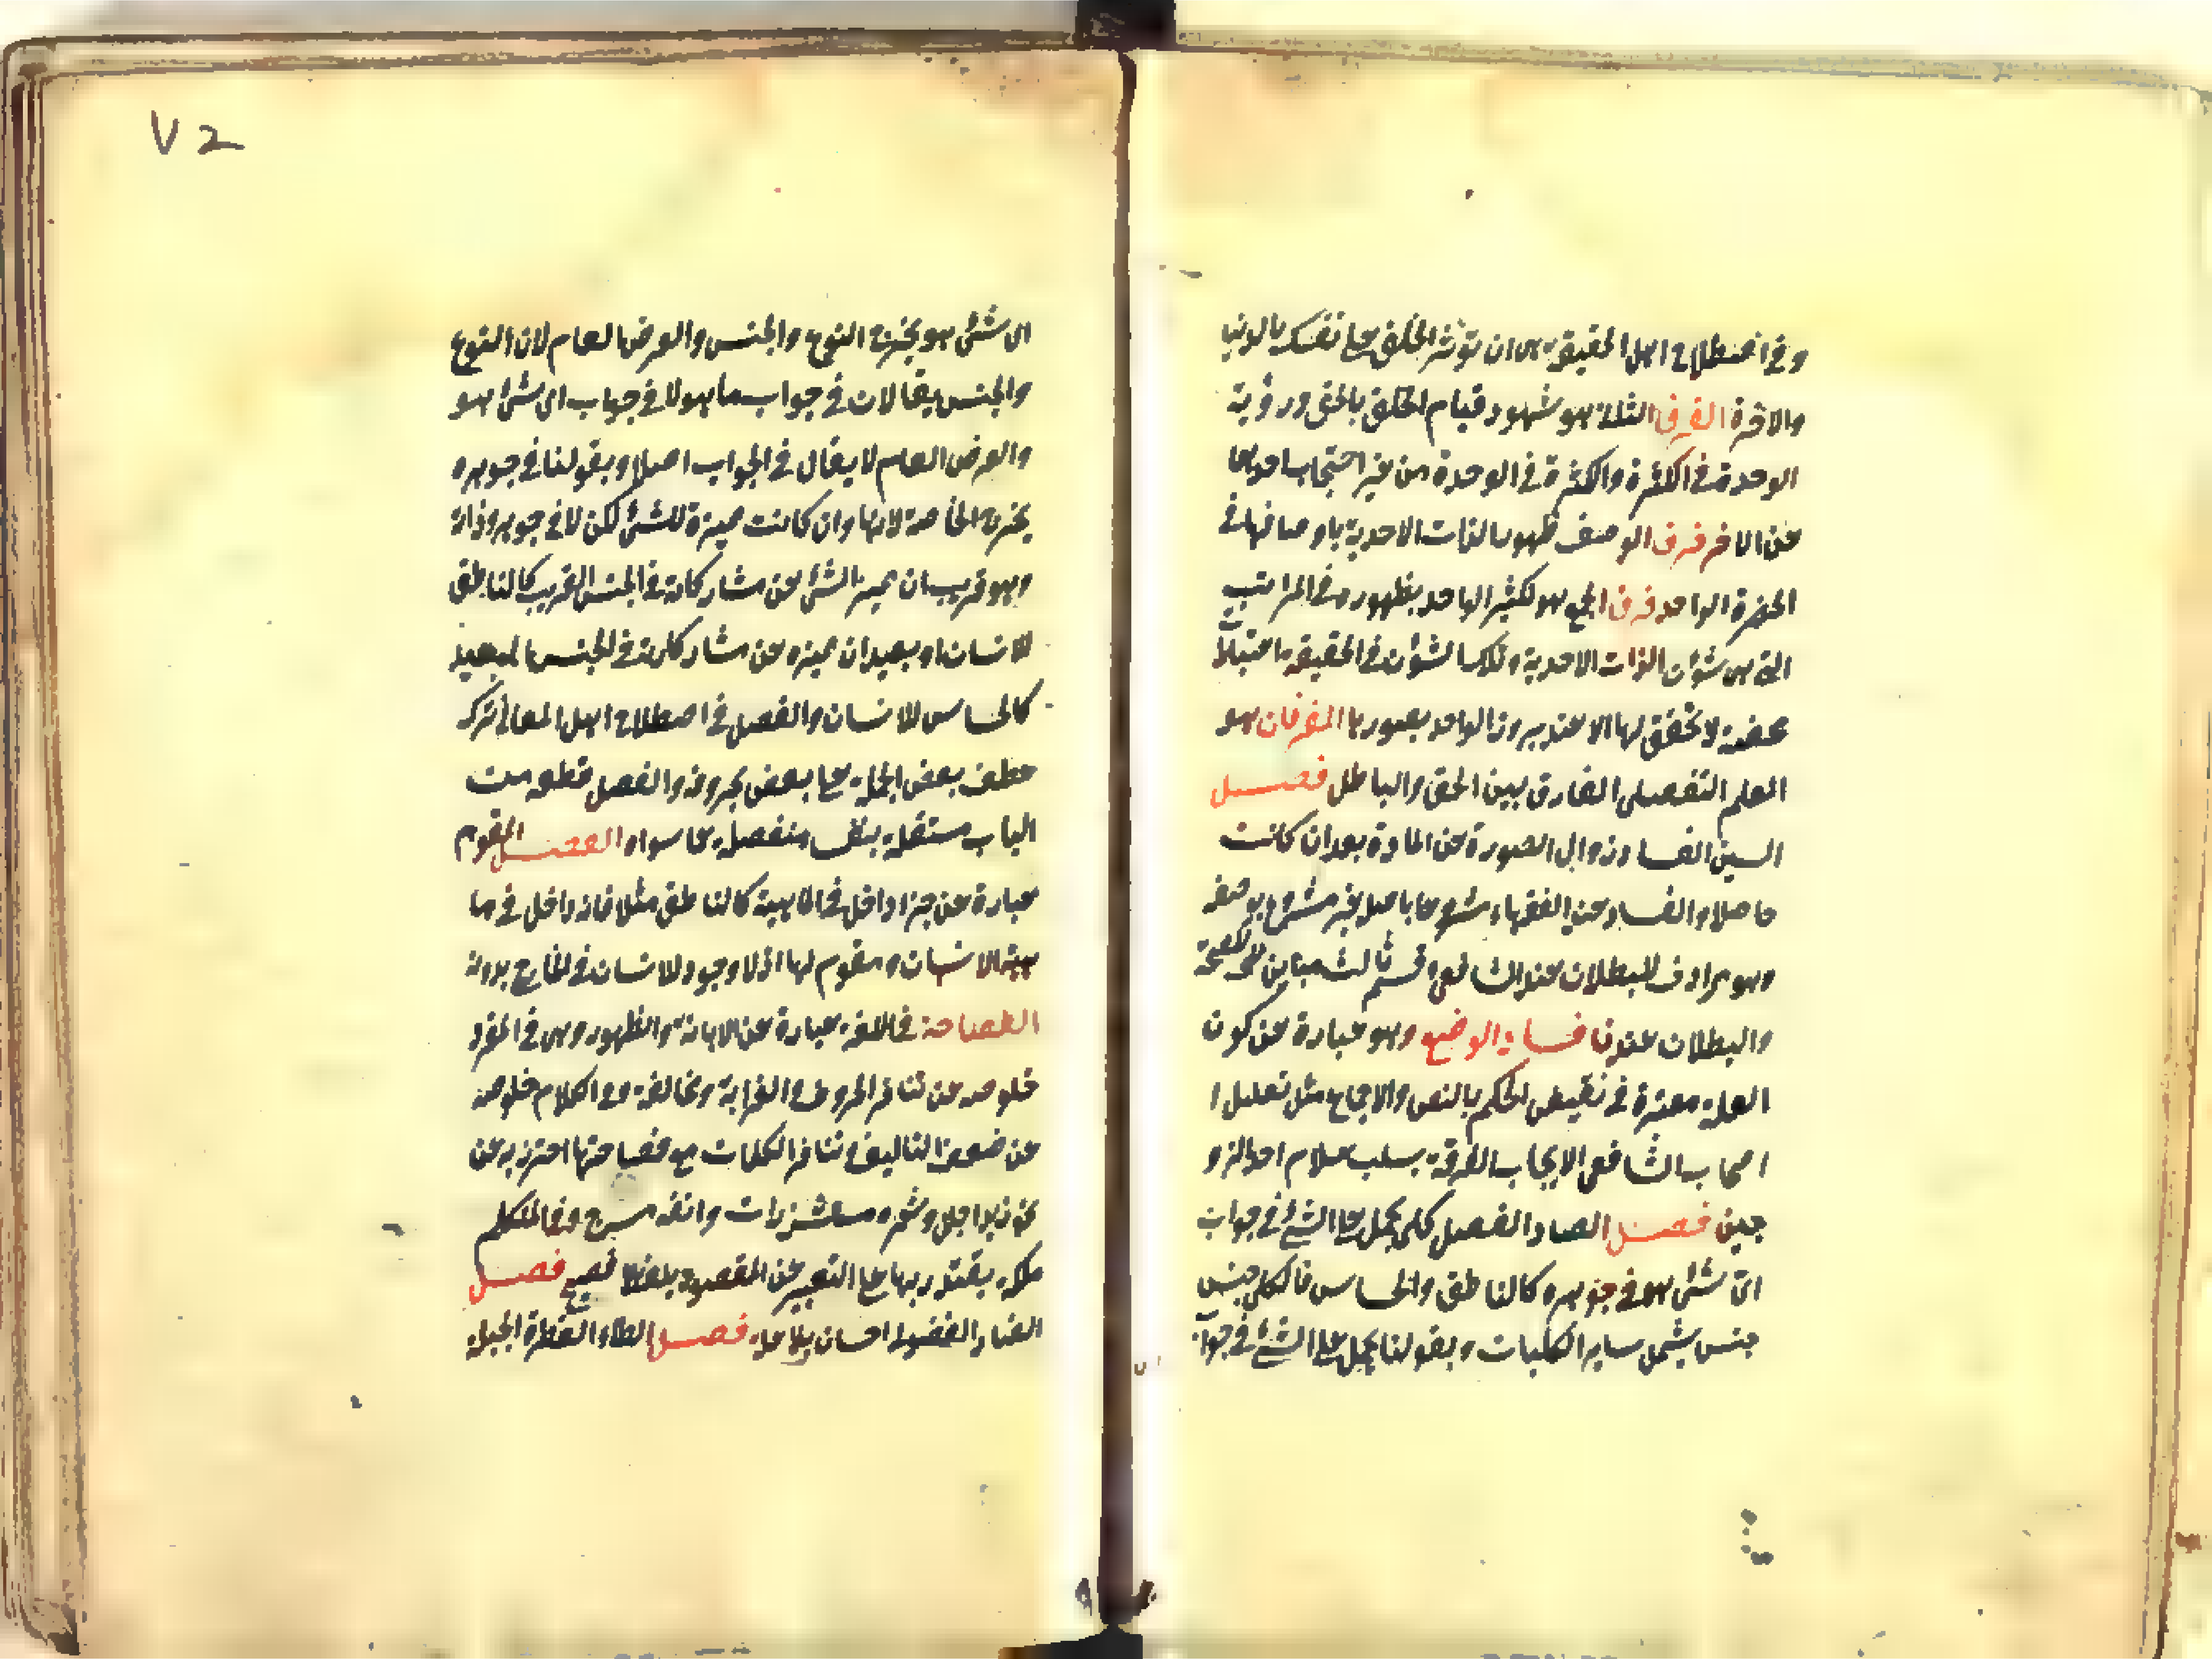 وفي اصطلاح اهل الحقيقة هي ان تؤثر الخلق على نفسك بالدنيا
والاخرة الفرق الثلاة هو شهود قيام الخلق بالحق ورؤية
الوحدة في الكثرة والكثرة في الوحدة من غير احتجاب احديها
عن الاخر فرق الوصف ظهور الذات الاحدية باوصافها في
الحضرة الواحد فرق الجمع هو لكثير الواحد بظهوره في المراتب
التي هي شؤن الذات الاحدية وتلك الشؤن في الحقيقة اعتبارات
محضة لا تحقق لها الا عند بروز الواحد بصورها الفرقان هو
العلم التفصيلي الفارق بين الحق والباطل فصل
السين الفساد زوال الصورة عن المادة بعد ان كانت
حاصلا والفساد عند الفقهاء مشروعا باصله غير مشروع بوصفه
وهو مرادف للبطلان عند الشافعي وقسم ثالث مباين للصحة
والبطلان عندنا فساد الوضع وهو عبارة عن كون
العلة معتبرة في نقيض الحكم بالنص والاجماع مثل تعليل ا
اصحاب الشافعي الايجاب الفرقة بسلب اسلام احد الزو
جين فصل الصاد الفصل كلي يحمل على الشئ في جواب
اي شئ هو في جوهره كالناطق والحاس فالكلي جنس
جنس يشمل ساير الكليات وبقولنا يحمل على الشئ في جواب
٧٢
اى شئ هو يخرج النوع والجنس والعرض العام لان النوع
والجنس يقالان في جواب ما هو لا في جواب اى شئ هو
والعرض العام لا يقال في الجواب اصلا وبقولنا في جوهره
يخرج الخاصة لانها وان كانت مميزة للشئ لكن لا في جوهره وذاته
وهو قريب ان ميز الشئ عن مشاركاته في الجنس القريب كالناطق
للانسان او بعيد ان ميزه عن مشاركاته في الجنس البعيد
كالحاس للانسان والفصل في اصطلاح اهل المعاني ترك
عطف بعض الجملة على بعض بحروفه والفصل قطعة من
الباب مستقلة بنفسها منفصلة عما سواه الفصل المقوم
عبارة عن جزء داخل في الماهية كالناطق مثلا فانه داخل في ما
هية الانسان ومقوم لها اذ لا وجود للانسان في الخارج بدونه
الفصاحة في اللغة عبارة عن الابانة والظهور وهي في المفرد
خلوصه عن تنافر الحروف والغرابة ومخالفة وفي الكلام خلوصه
عن ضعف التاليف وتنافر الكلمات مع فصاحتها احترز به عن
نحو زيد اجلل وشعره مستشزرات وانفه مسرج وفي المتكلم
ملكة يقتدر بها على التعبير عن المقصود بلفظ فصيح فصل
الضاد الفضول احسان بلا علة فصل الطاء الفطرة الجبلة